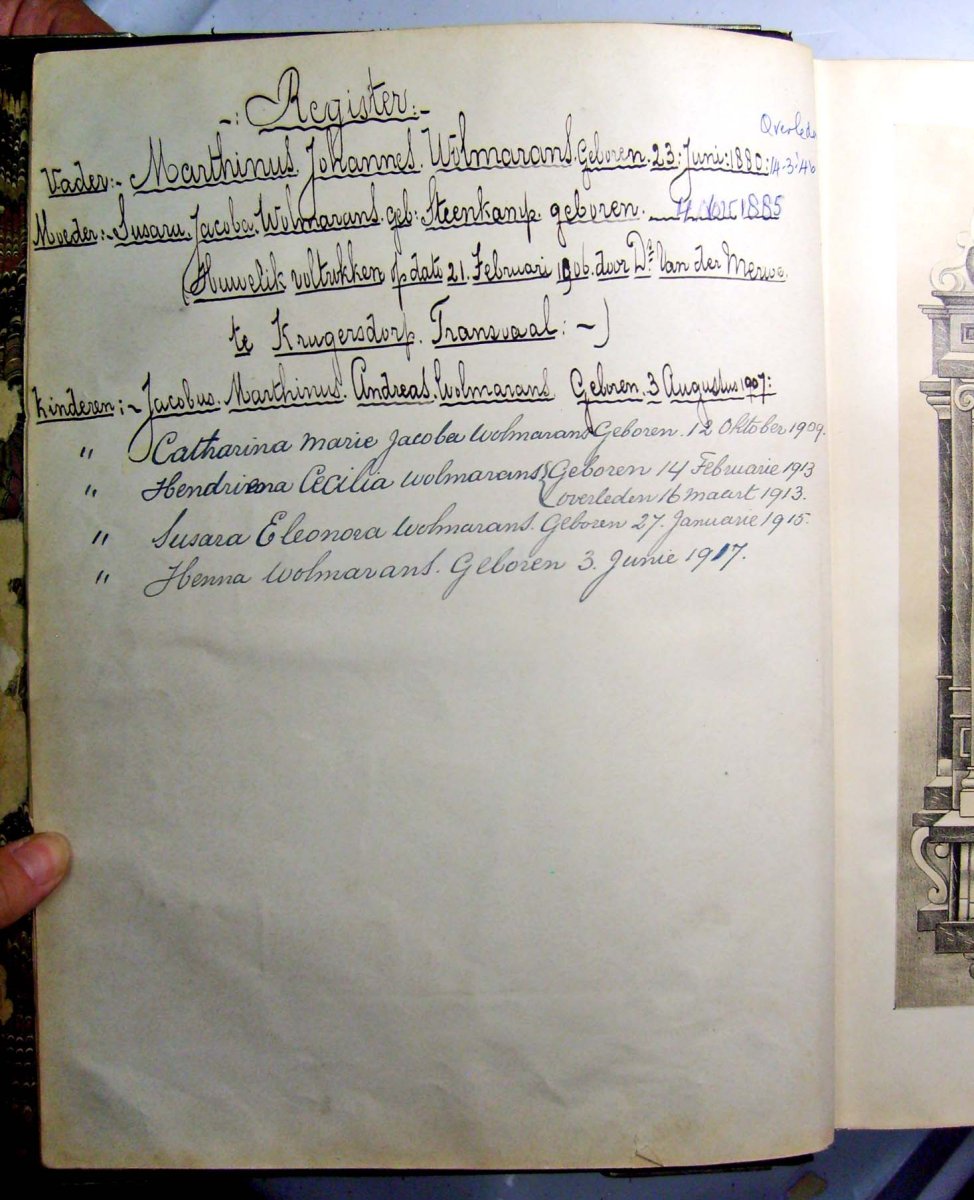 -: Register :-
Overleden
Vader:- Marthinus. Johannes. Wolmarans. Geboren. 23. Juni: 1880: 14-3-'46
Moeder:- Susara. Jacoba. Wolmarans. geb: Steenkamp. geboren. 1885
(Huwelik voltrokken op dato 21. Februari 1906. door Ds. Van der Merwe.
te Krugersdorp. Transvaal: -)
Kinderen:- Jacobus. Marthinus. Andreas. Wolmarans. Geboren. 3 Augustus 1907:
" Catharina Marie Jacoba Wolmarans Geboren. 12 Oktober 1909.
" Hendriena Cecilia Wolmarans { Geboren 14 Februarie 1913
overleden 16 maart 1913.
" Susara Eleonora Wolmarans. Geboren 27. Januarie 1915.
" Henna Wolmarans. Geboren 3. Junie 1917.